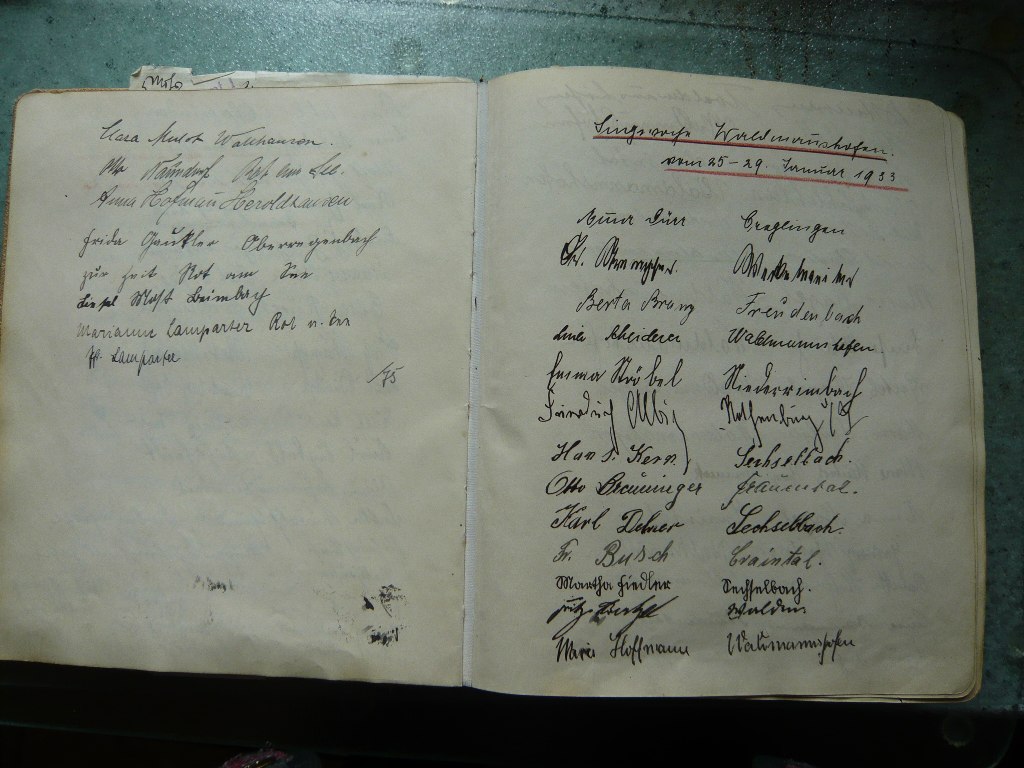 Clara
Otto Rot am See.
Anna Hofmann Heroldhausen
Frida Gaukler Oberregenbach
zur Zeit Rot am See
Most Beimbach
Marianne Lamparter Rot a. See
Lamparter
/75
Singwoche Waldmannshofen.
vom 25-29. Januar 1933
Anna Dürr Creglingen
Berta Freudenbach
Waldmannshofen.
Emma Ströbel Niederrimbach
Friedrich Albig Rothenburg
Hans Kern Sechselbach.
Otto Breuninger Frauental.
Karl Dehner Sechselbach.
Fr. Busch Craintal.
Martha Fiedler Sechselbach.
Fritz
Marie Hoffmann Waldmannshofen